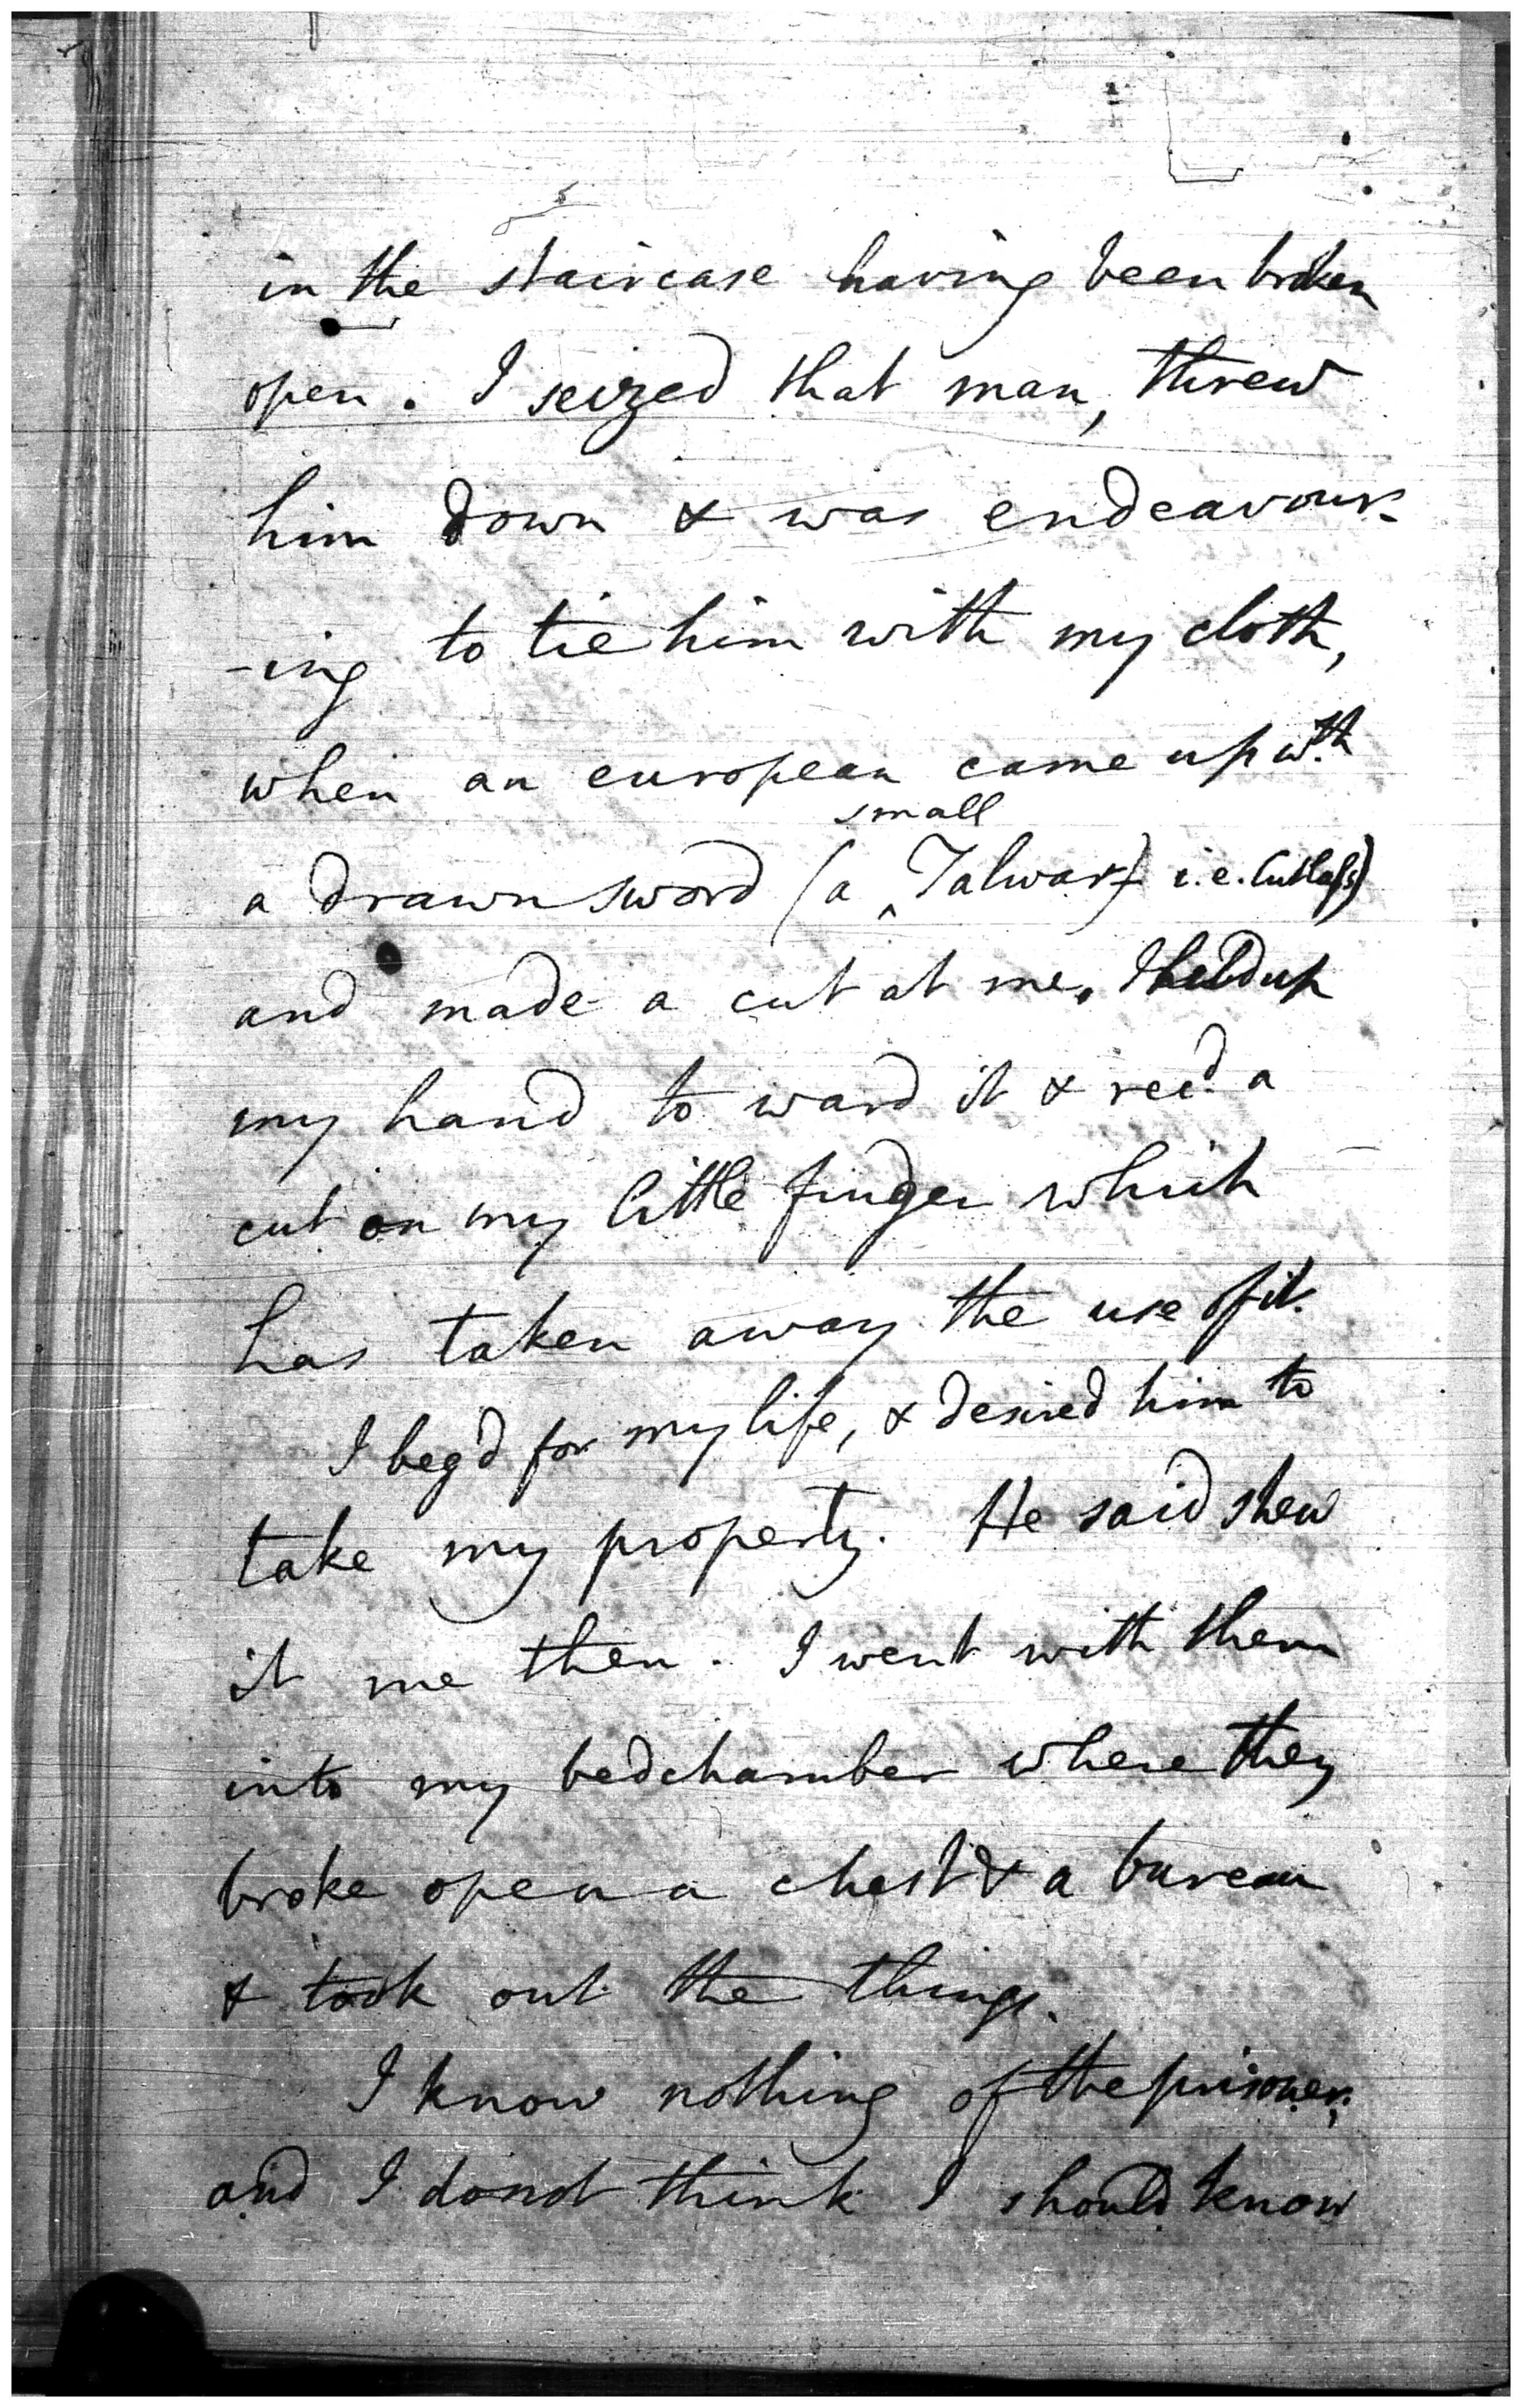 in the staircase having been broken
open. I seized that man, threw
him down & was endeavour-
-ing to tie him with my cloth,
when an european came up wth
small
a drawn sword (a ^ Talwar) i.e. Cutlass)
and made a cut at me. I held up
my hand to ward it & recd. a
cut on my little finger which
has taken away the use of it.
I beg'd for my life, & desired him to
take my property. He said shew
it me then. I went with them
into my bedchamber where they
broke open a chest & a bureau
& took out the things.
I know nothing of the prisoner,
and I do not think I should know